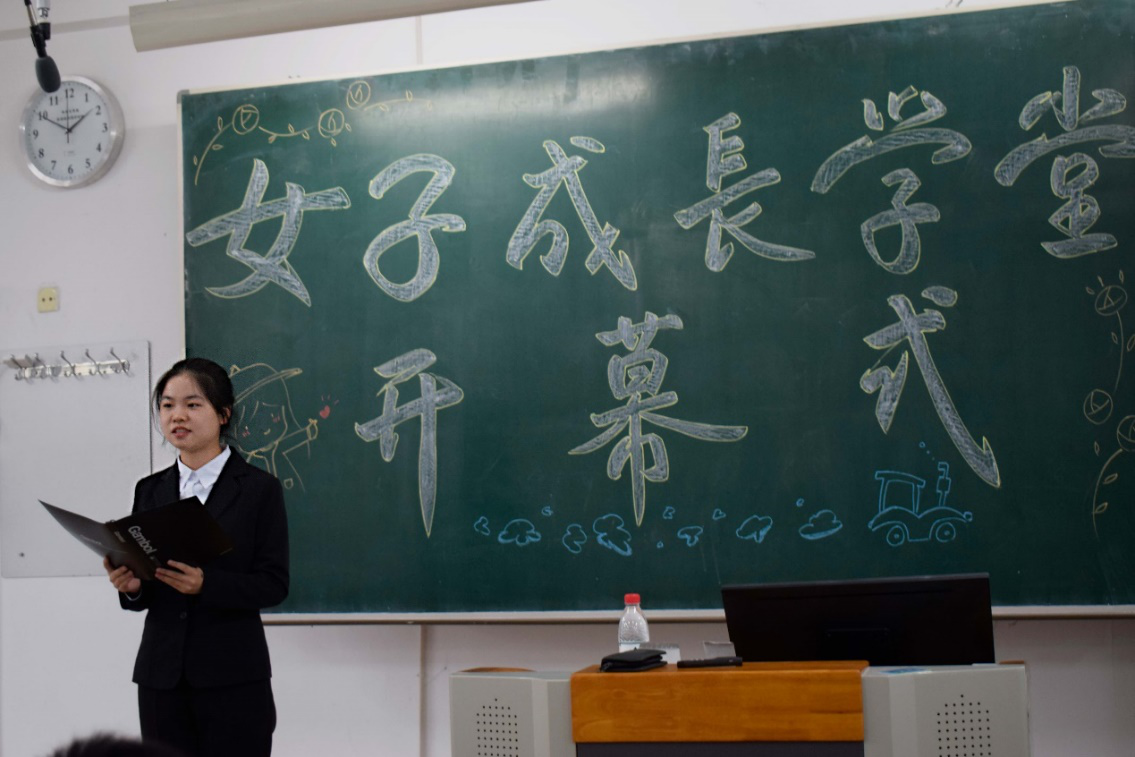 女子成長学堂
开幕式
Gambol